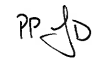 PP JD